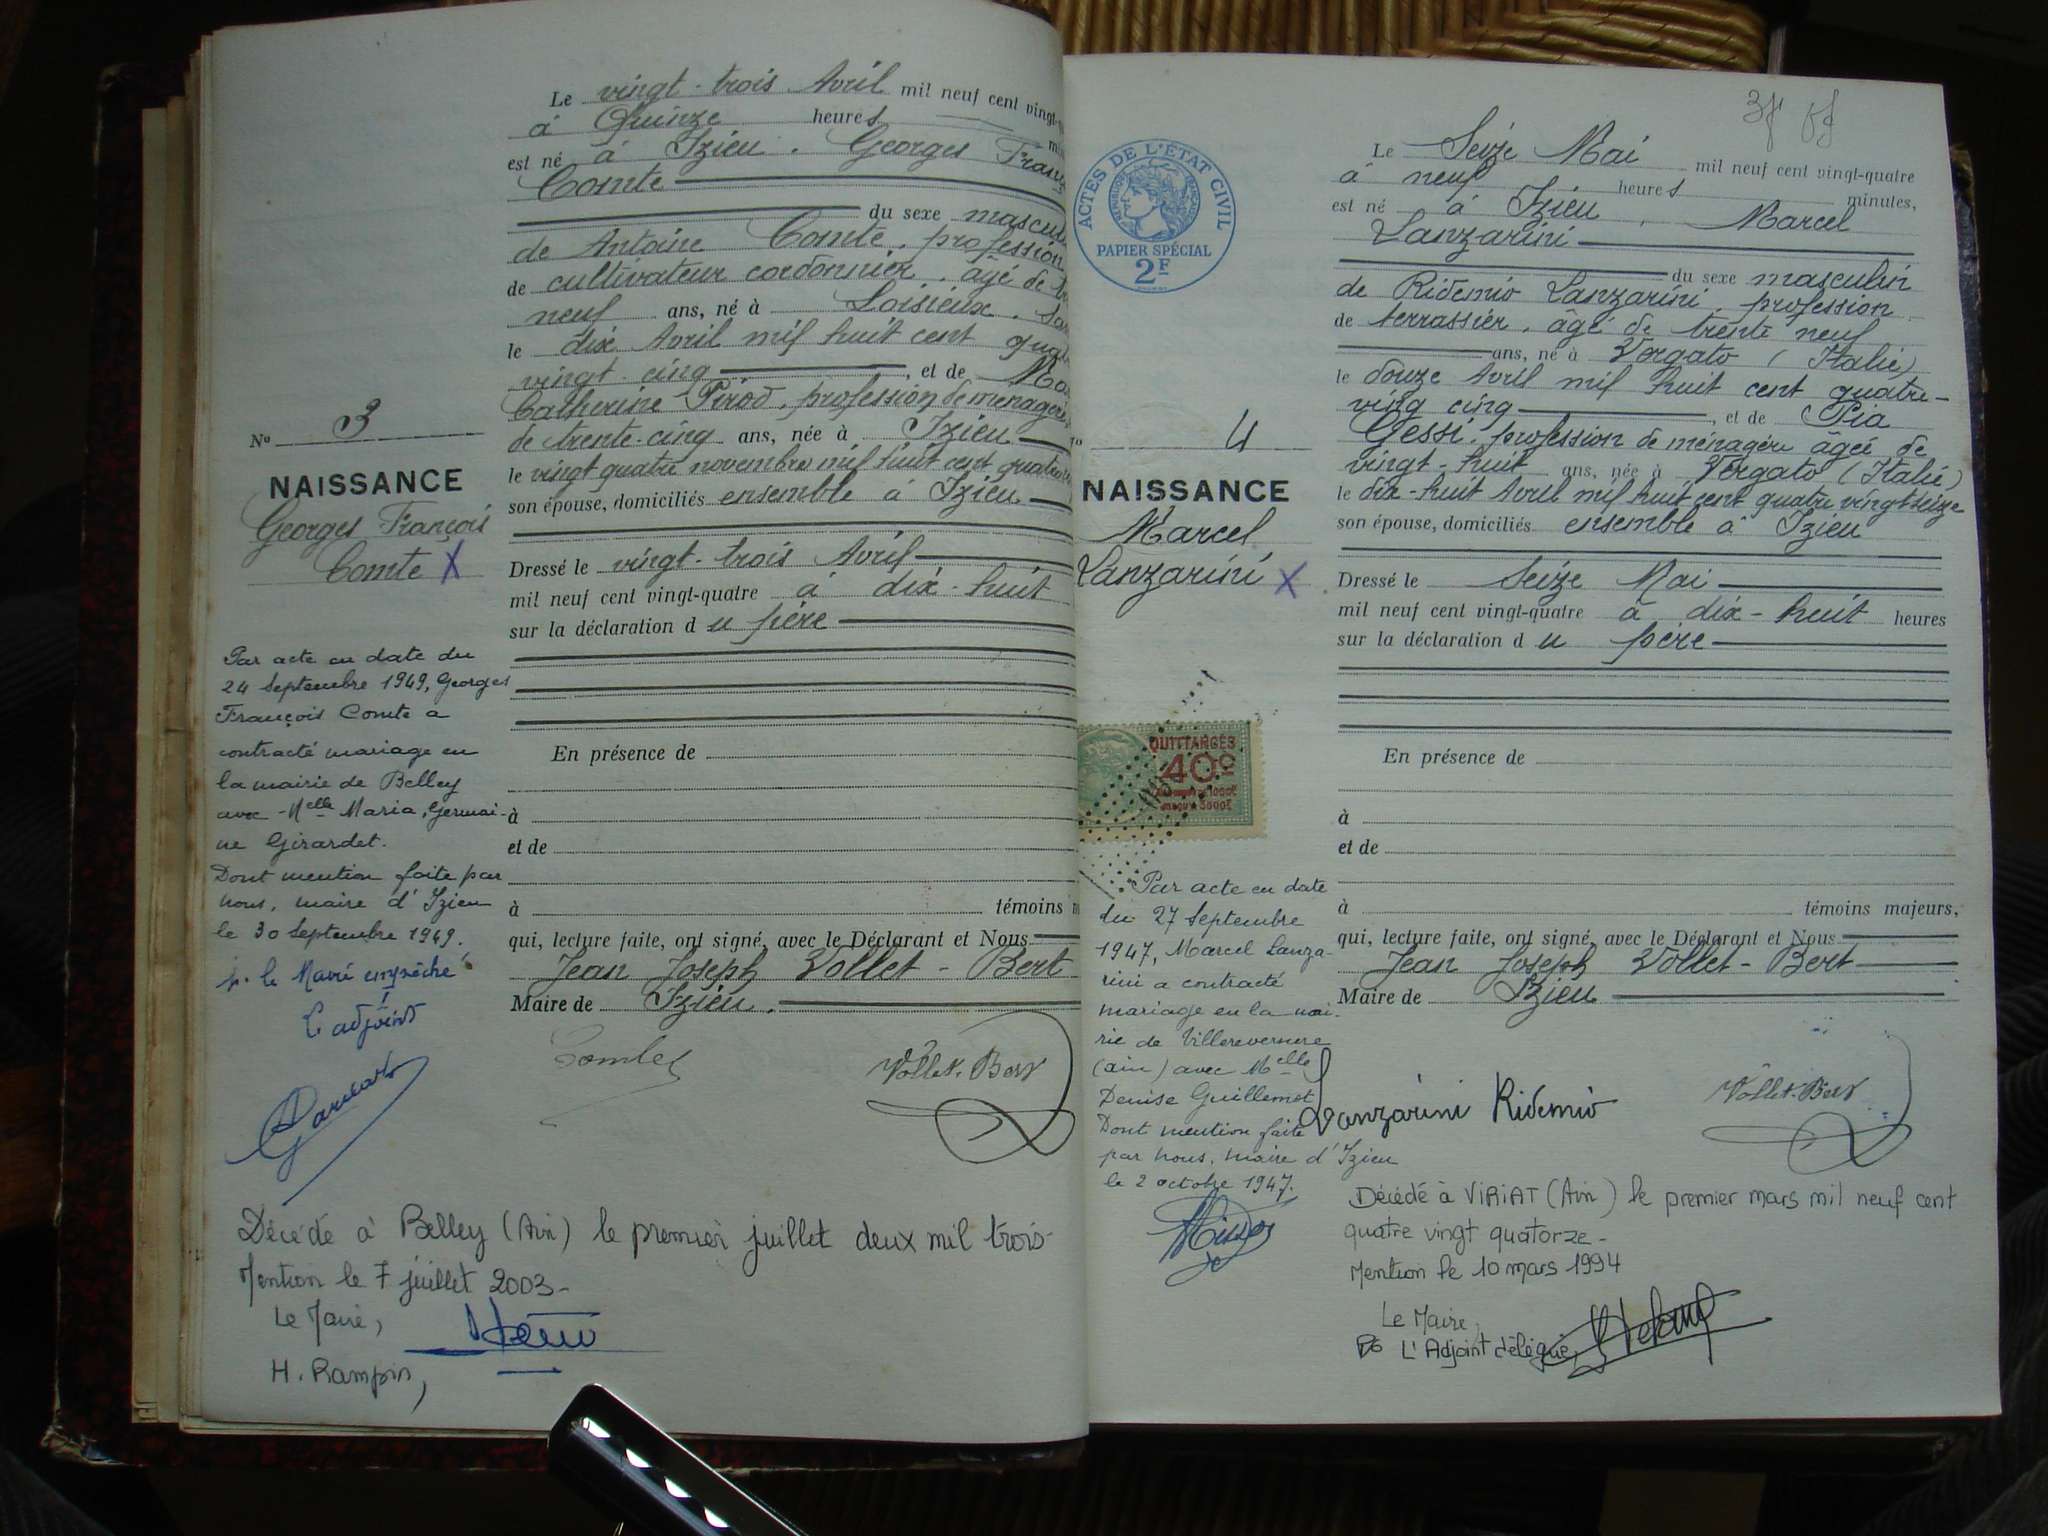 Le vingt-trois Avril mil neuf cent vingt-
à Quinze heures
est né à Izieu. Georges Franç
Comte
du sexe mascul
de Antoine Comte, profession
de cultivateur cordonnier, âgé de
neuf ans, né à Loisieux,
le dix Avril mil huit cent quat
vingt-cinq, et de Ma
Catherine Pirod, profession de ménagère,
de trente-cinq ans, née à Izieu
le vingt quatre novembre mil huit cent quatre
son épouse, domiciliés ensemble à Izieu
Dressé le vingt-trois Avril
mil neuf cent vingt-quatre à dix-huit
sur la déclaration du père
En présence de
à
et de
à témoins m
qui, lecture faite, ont signé, avec le Déclarant et Nous
Jean Joseph Vollet-Bert
Maire de Izieu.
Comte
Vollet-Bert
No 3
NAISSANCE
Georges François
Comte X
Par acte en date du
24 Septembre 1949, Georges
François Comte a
contracté mariage en
la mairie de Belley
avec Melle Maria, Germai-
ne Girardet.
Dont mention faite par
nous, maire d'Izieu
le 30 Septembre 1949.
p. le Maire empêché
L'adjoint
Décédé à Belley (Ain) le premier juillet deux mil trois-
Mention le 7 juillet 2003-
Le Maire,
H. Rampin,
ACTES DE L'ÉTAT CIVIL
RÉPUBLIQUE FRANÇAISE
PAPIER SPÉCIAL
2F
Le Seize Mai mil neuf cent vingt-quatre
à neuf heures minutes,
est né à Izieu, Marcel
Lanzarini
du sexe masculin
de Ridemio Lanzarini, profession
de terrassier, âgé de trente neuf
ans, né à Vergato (Italie)
le douze Avril mil huit cent quatre-
ving cinq, et de Pia
Gessi, profession de ménagère âgée de
vingt-huit ans, née à Vergato (Italie)
le dix-huit Avril mil huit cent quatre vingt seize
son épouse, domiciliés ensemble à Izieu
Dressé le Seize Mai
mil neuf cent vingt-quatre à dix-huit heures
sur la déclaration du père
En présence de
à
et de
à témoins majeurs,
qui, lecture faite, ont signé, avec le Déclarant et Nous
Jean Joseph Vollet-Bert
Maire de Izieu
Lanzarini Ridemio
Vollet-Bert
4
NAISSANCE
Marcel
Lanzarini X
QUITTANCES
40c
Par acte en date
du 27 Septembre
1947, Marcel Lanza-
rini a contracté
mariage en la mai-
rie de Villereversure
(ain) avec Melle
Denise Guillemot
Dont mention faite
par nous, maire d'Izieu
le 2 octobre 1947.
Décédé à VIRIAT (Ain) le premier mars mil neuf cent
quatre vingt quatorze-
Mention le 10 mars 1994
Le Maire,
Po L'Adjoint délégué,